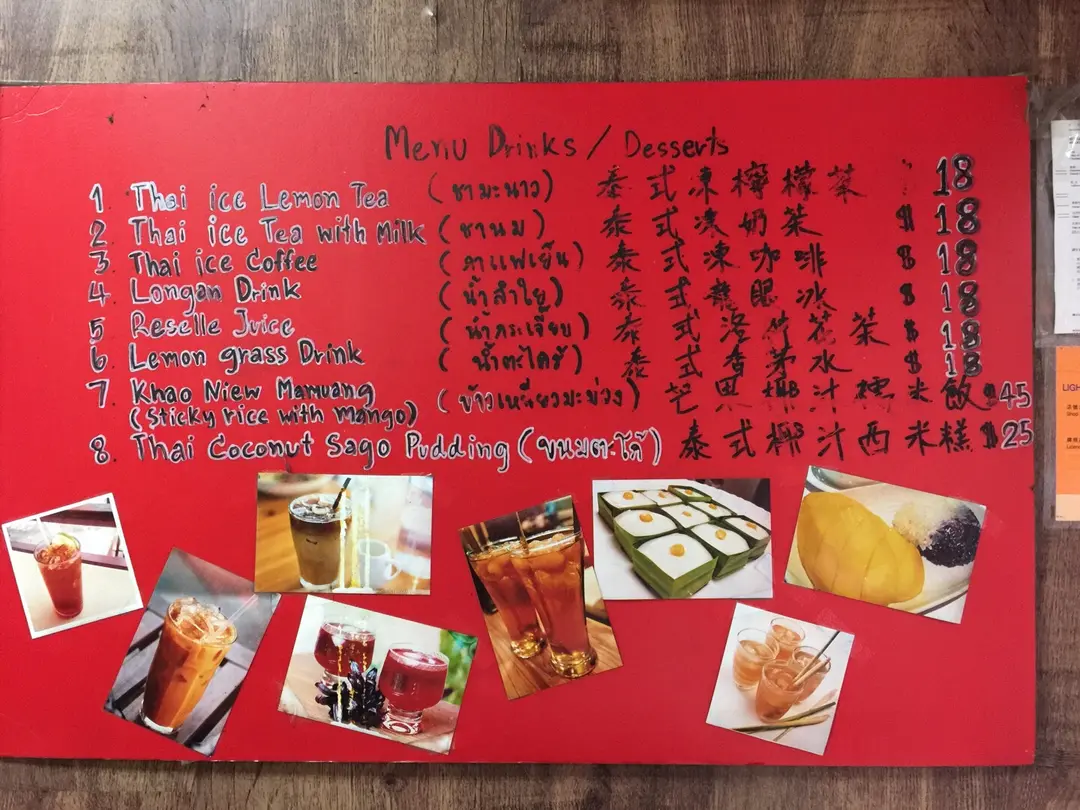 Menu Drinks / Desserts
1 Thai ice Lemon Tea (ชามะนาว) 泰式凍檸檬茶 18
2 Thai ice Tea with Milk (ชานม) 泰式凍奶茶 $ 18
3 Thai ice Coffee (กาแฟเย็น) 泰式凍咖啡 $ 18
4 Longan Drink (น้ำลำใย) 泰式龍眼冰 $ 18
5 Reselle Juice (น้ำกระเจี๊ยบ) 泰式洛荷花茶 $ 18
6 Lemon grass Drink (น้ำตะไคร้) 泰式香茅水 $ 18
7 Khao Niew Mamuang (ข้าวเหนียวมะม่วง) 芒果椰汁糯米飯 $45
(Sticky rice with mango)
8 Thai Coconut Sago Pudding (ขนมตะโก้) 泰式椰汁西米糕 $25
LIGH